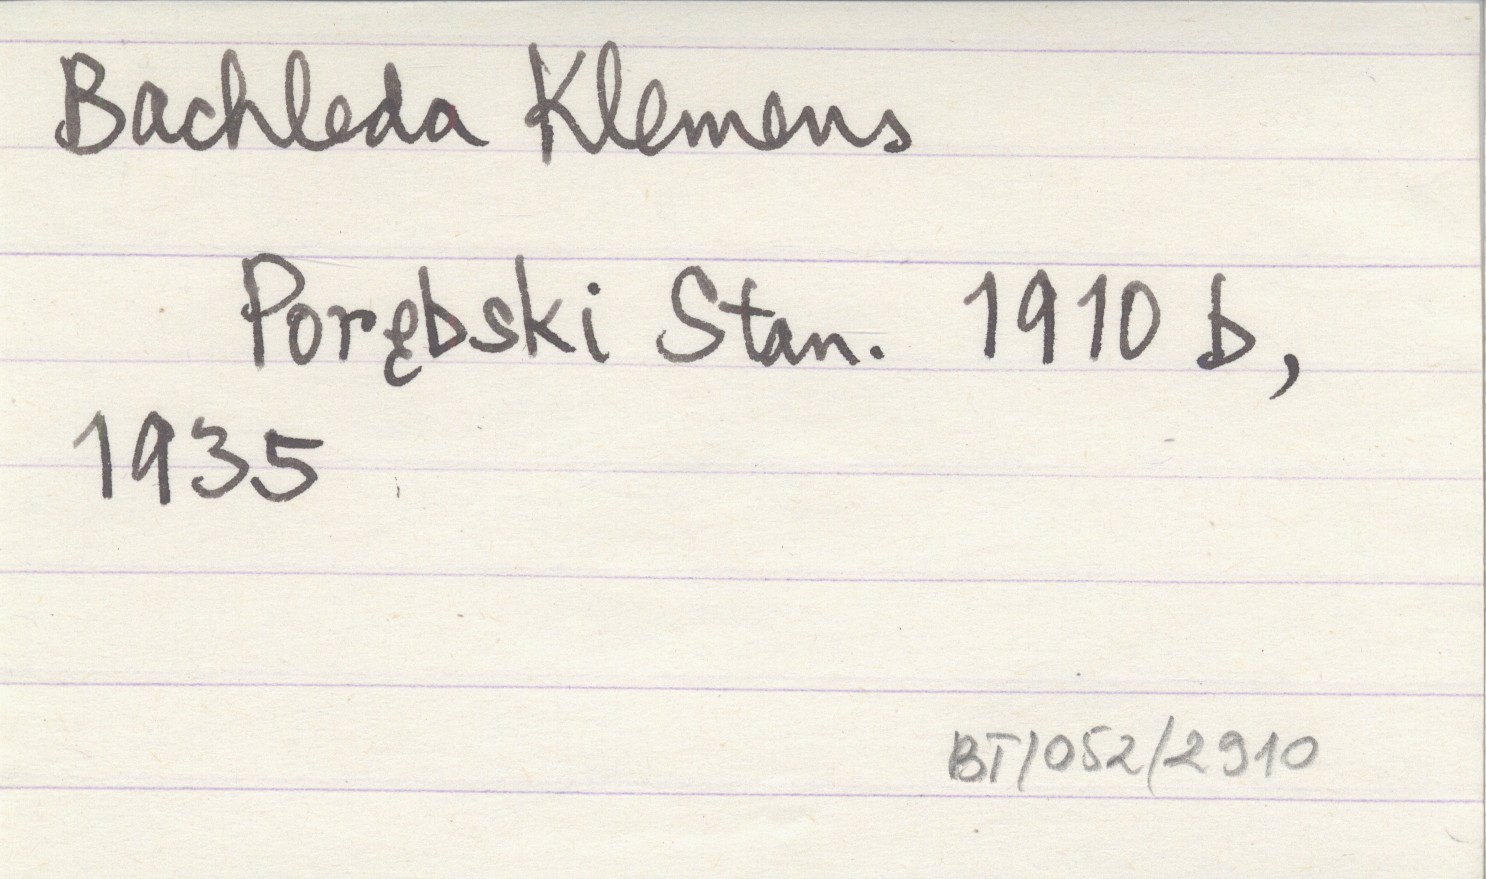 Bachleda Klemens
Porębski Stan. 1910 b,
1935
BT/052/2910